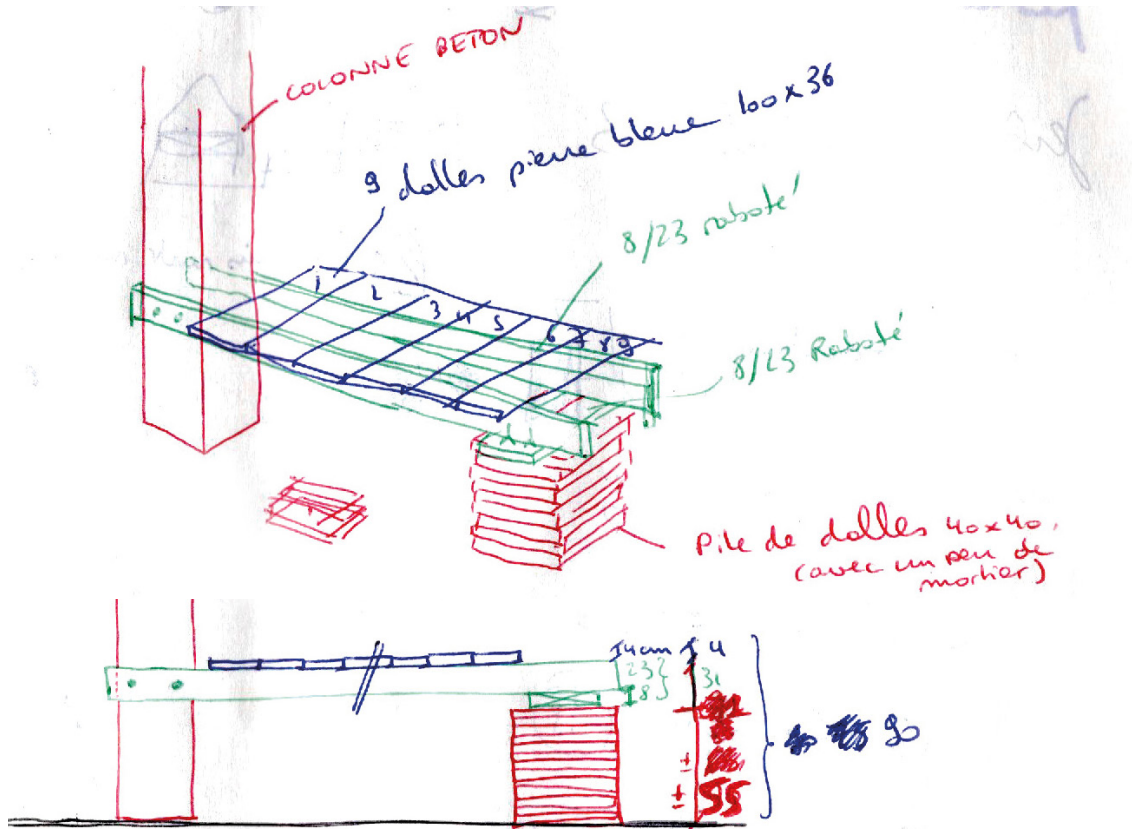 COLONNE BETON
9 dalles pierre bleue 100x36
8/23 raboté
1 2 3 4 5 6 7 8 9
8/23 Raboté
Pile de dalles 40x40.
(avec un peu de
mortier)
4cm 4
23
8
31
± 
± 55
90